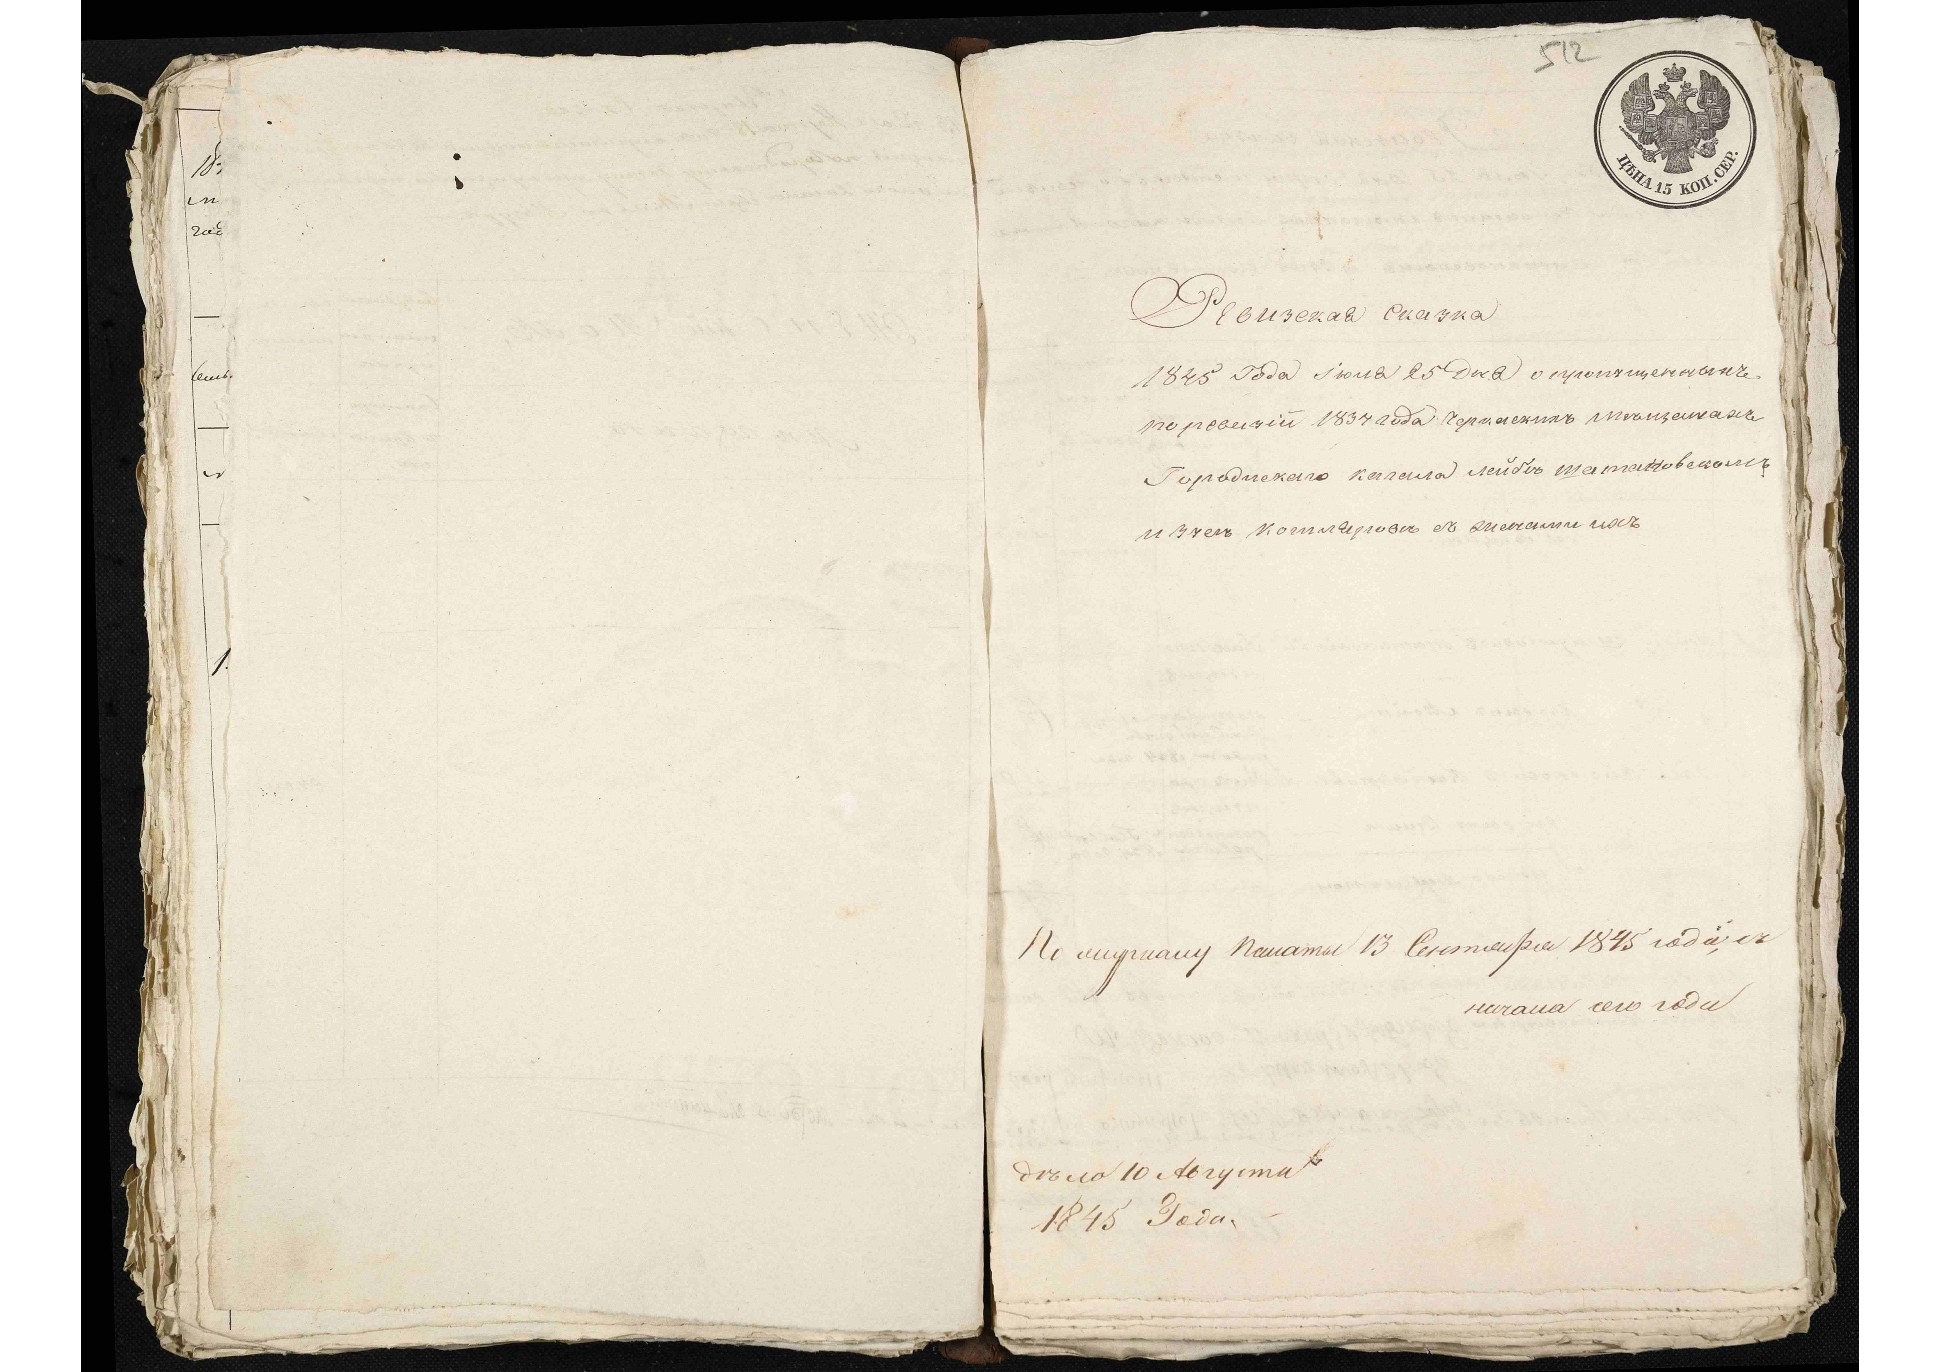 512
ЦѢНА 15 КОП. СЕР.
Ревизская сказка
1845 Года Июля 25 Дня о пропущенныхъ
по ревизіи 1834 года Черкаскихъ мѣщанахъ
Городискаго кагала Лейбѣ Шатановскомъ
и котляровъ съ женами ихъ
По журналу Палаты 13 Сентября 1845 года, съ
начала сего года
дѣло 10 Августа
1845 Года.